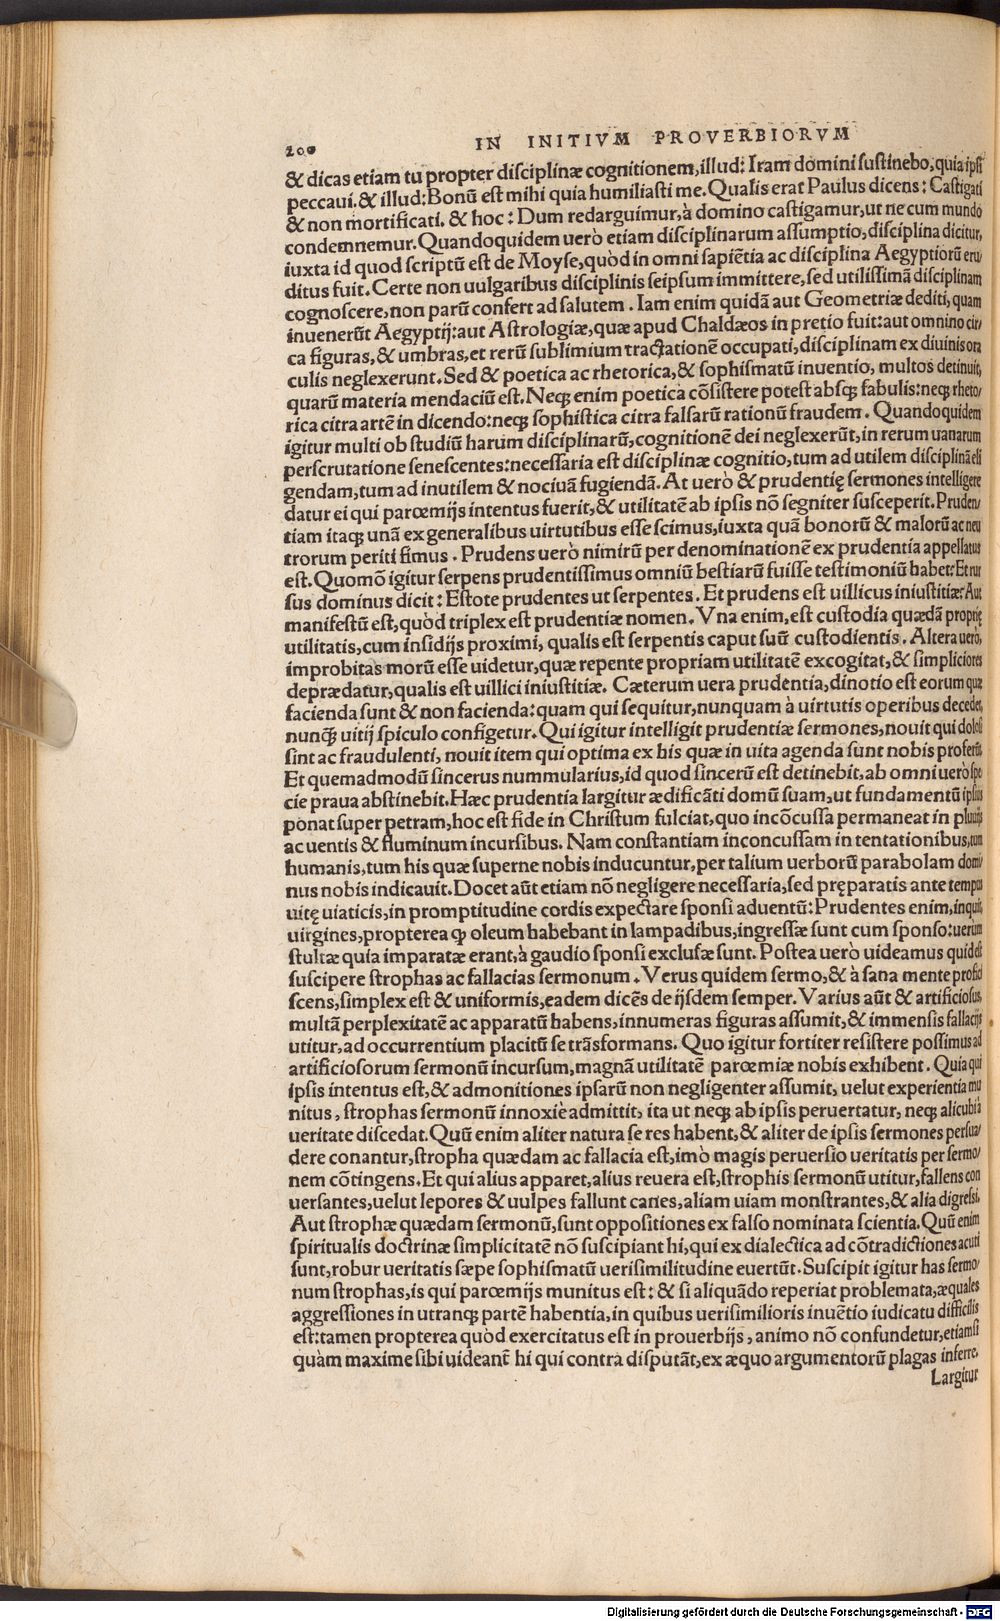 200
IN INITIVM PROVERBIORVM
& dicas etiam tu propter disciplinæ cognitionem, illud: Iram domini sustinebo, quia ipsi
peccaui. & illud: Bonū est mihi quia humiliasti me. Qualis erat Paulus dicens: Castigati
& non mortificati. & hoc: Dum redarguimur, à domino castigamur, ut ne cum mundo
condemnemur. Quandoquidem uerò etiam disciplinarum assumptio, disciplina dicitur,
iuxta id quod scriptū est de Moyse, quòd in omni sapiētia ac disciplina Aegyptiorū eru/
ditus fuit. Certe non uulgaribus disciplinis seipsum immittere, sed utilissimā disciplinam
cognoscere, non parū confert ad salutem. Iam enim quidā aut Geometriæ dediti, quam
inuenerūt Aegyptij: aut Astrologiæ, quæ apud Chaldæos in pretio fuit: aut omnino cir/
ca figuras, & umbras, et rerū sublimium tractationē occupati, disciplinam ex diuinis ora
culis neglexerunt. Sed & poetica ac rhetorica, & sophismatū inuentio, multos detinuit,
quarū materia mendaciū est. Neqꝫ enim poetica cōsistere potest absqꝫ fabulis: neqꝫ rheto/
rica citra artē in dicendo: neqꝫ sophistica citra falsarū rationū fraudem. Quandoquidem
igitur multi ob studiū harum disciplinarū, cognitionē dei neglexerūt, in rerum uanarum
perscrutatione senescentes: necessaria est disciplinæ cognitio, tum ad utilem disciplinā eli
gendam, tum ad inutilem & nociuā fugiendā. At uerò & prudentię sermones intelligere
datur ei qui parœmijs intentus fuerit, & utilitatē ab ipsis nō segniter susceperit. Pruden/
tiam itaqꝫ unā ex generalibus uirtutibus esse scimus, iuxta quā bonorū & malorū ac neu
trorum periti simus. Prudens uerò nimirū per denominationē ex prudentia appellatus
est. Quomō igitur serpens prudentissimus omniū bestiarū fuisse testimoniū habet: Et rur
sus dominus dicit: Estote prudentes ut serpentes. Et prudens est uillicus iniustitiæ: Aut
manifestū est, quòd triplex est prudentiæ nomen. Vna enim, est custodia quædā proprię
utilitatis, cum insidijs proximi, qualis est serpentis caput suū custodientis. Altera uerò,
improbitas morū esse uidetur, quæ repente propriam utilitatē excogitat, & simpliciores
deprædatur, qualis est uillici iniustitiæ. Cæterum uera prudentia, dinotio est eorum quæ
facienda sunt & non facienda: quam qui sequitur, nunquam à uirtutis operibus decedet,
nunq̄ꝫ uitij spiculo configetur. Qui igitur intelligit prudentiæ sermones, nouit qui dolosi
sint ac fraudulenti, nouit item qui optima ex his quæ in uita agenda sunt nobis proferūt.
Et quemadmodū sincerus nummularius, id quod sincerū est detinebit, ab omni uerò spe
cie praua abstinebit. Hæc prudentia largitur ædificāti domū suam, ut fundamentū ipsius
ponat super petram, hoc est fide in Christum fulciat, quo incōcussa permaneat in pluuijs
ac uentis & fluminum incursibus. Nam constantiam inconcussam in tentationibus, tum
humanis, tum his quæ superne nobis inducuntur, per talium uerborū parabolam domi/
nus nobis indicauit. Docet aūt etiam nō negligere necessaria, sed pręparatis ante tempus
uitę uiaticis, in promptitudine cordis expectare sponsi aduentū: Prudentes enim, inquit,
uirgines, propterea ꝙ oleum habebant in lampadibus, ingressæ sunt cum sponso: uerum
stultæ quia imparatæ erant, à gaudio sponsi exclusæ sunt. Postea uerò uideamus quid est
suscipere strophas ac fallacias sermonum. Verus quidem sermo, & à sana mente profici
scens, simplex est & uniformis, eadem dicēs de ijsdem semper. Varius aūt & artificiosus,
multā perplexitatē ac apparatū habens, innumeras figuras assumit, & immensis fallacijs
utitur, ad occurrentium placitū se trāsformans. Quo igitur fortiter resistere possimus ad
artificiosorum sermonū incursum, magnā utilitatē parœmiæ nobis exhibent. Quia qui
ipsis intentus est, & admonitiones ipsarū non negligenter assumit, uelut experientia mu
nitus, strophas sermonū innoxiè admittit, ita ut neqꝫ ab ipsis peruertatur, neqꝫ alicubi à
ueritate discedat. Quū enim aliter natura se res habent, & aliter de ipsis sermones persua/
dere conantur, stropha quædam ac fallacia est, imò magis peruersio ueritatis per sermo/
nem cōtingens. Et qui alius apparet, alius reuera est, strophis sermonū utitur, fallens con
uersantes, uelut lepores & uulpes fallunt canes, aliam uiam monstrantes, & alia digressi.
Aut strophæ quædam sermonū, sunt oppositiones ex falso nominata scientia. Quū enim
spiritualis doctrinæ simplicitatē nō suscipiant hi, qui ex dialectica ad cōtradictiones acuti
sunt, robur ueritatis sæpe sophismatū uerisimilitudine euertūt. Suscipit igitur has sermo/
num strophas, is qui parœmijs munitus est: & si aliquādo reperiat problemata, æquales
aggressiones in utranqꝫ partē habentia, in quibus uerisimilioris inuētio iudicatu difficilis
est: tamen propterea quòd exercitatus est in prouerbijs, animo nō confundetur, etiamsi
quàm maxime sibi uideant̄ hi qui contra disputāt, ex æquo argumentorū plagas inferre.
Largitur
Digitalisierung gefördert durch die Deutsche Forschungsgemeinschaft - DFG